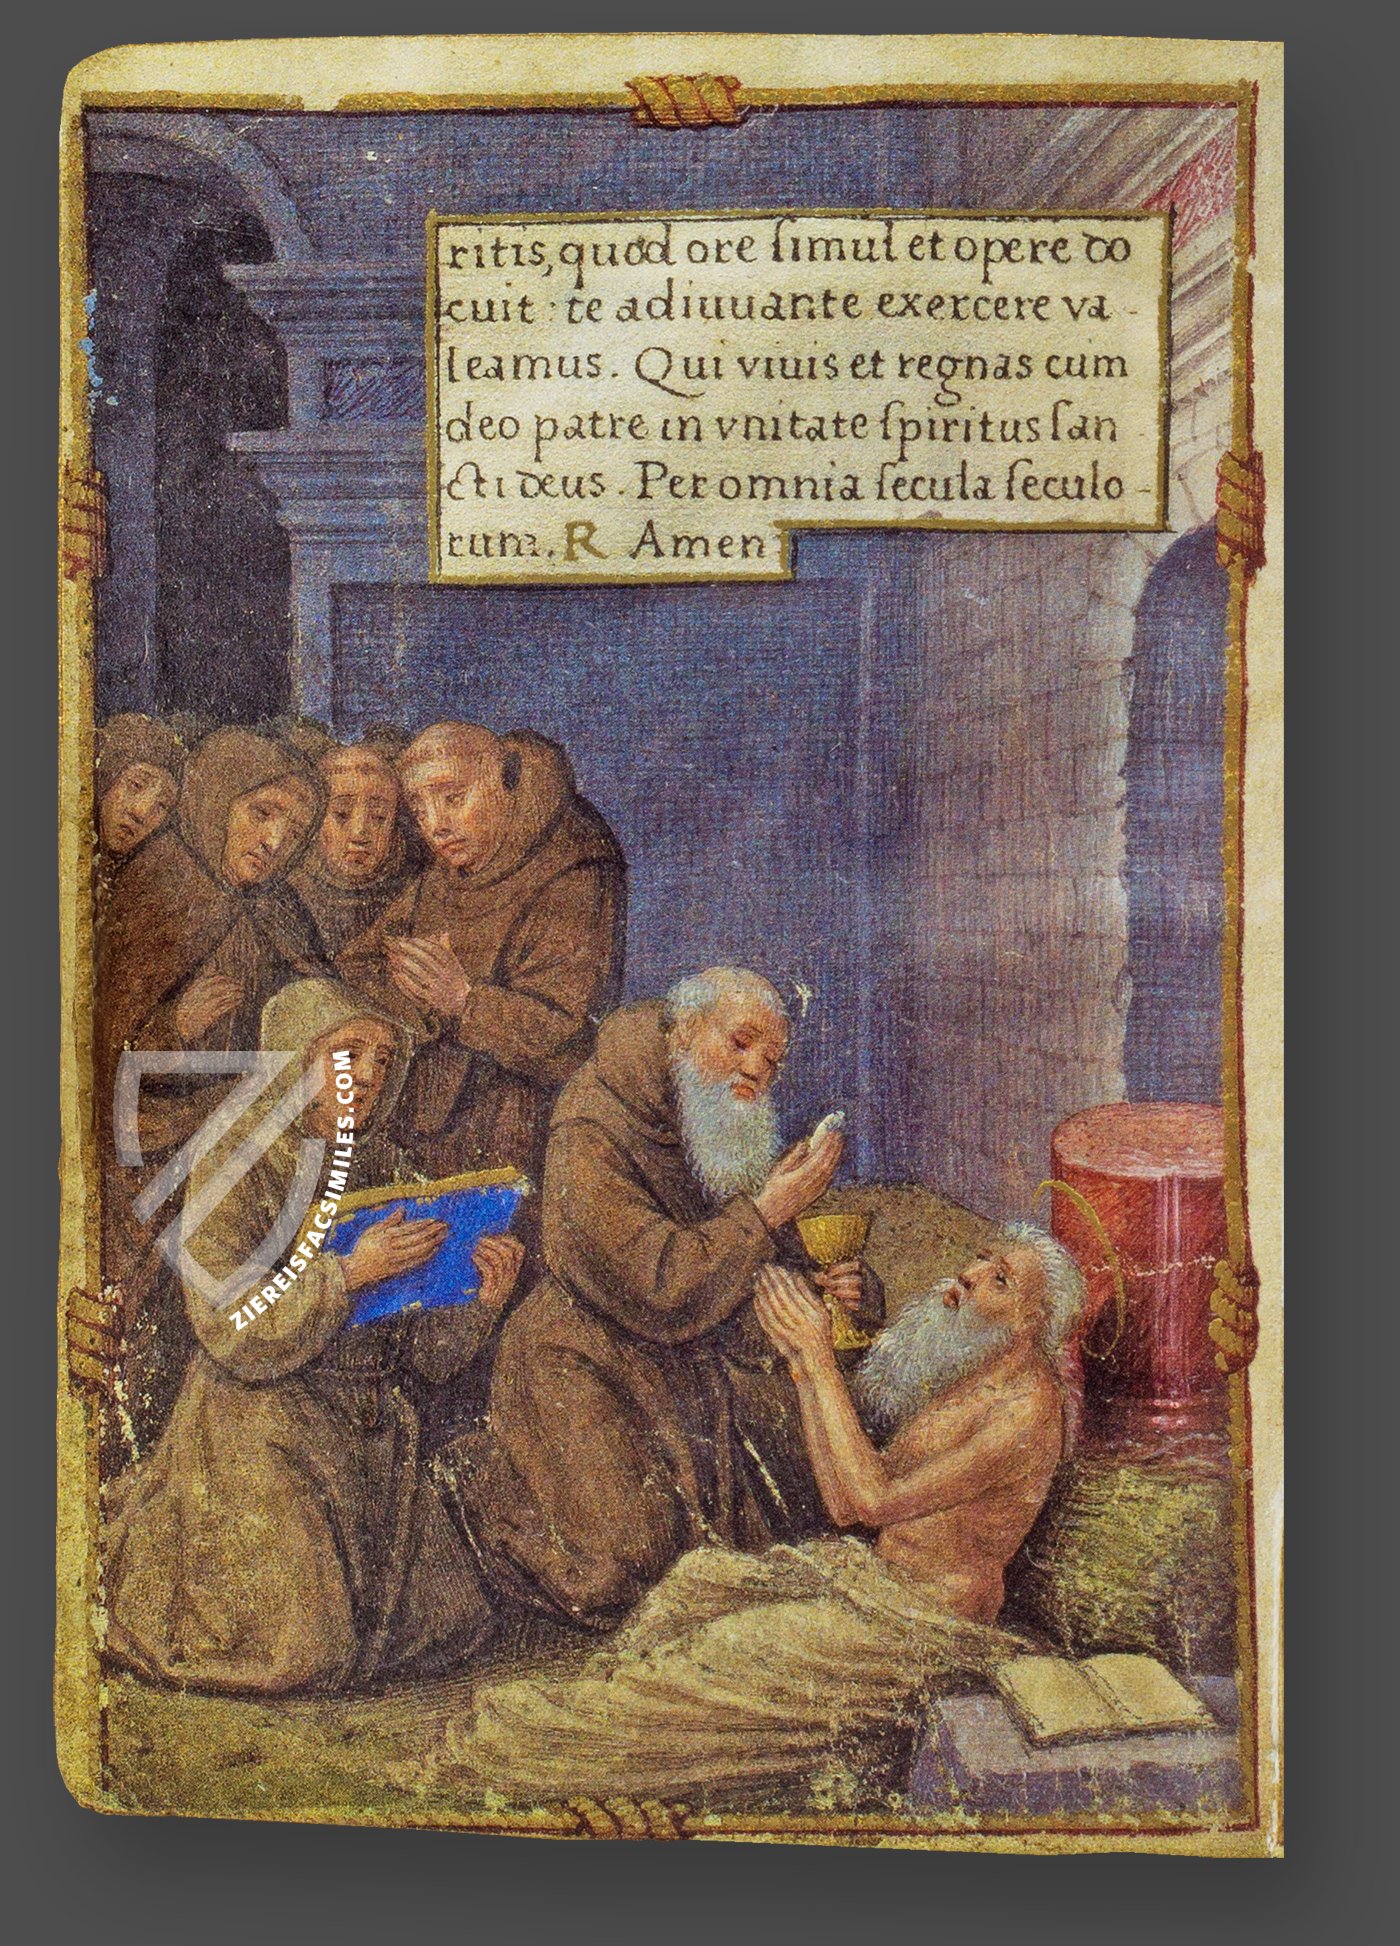 ritis, quod ore ſimul et opere do
cuit : te adiuuante exercere va -
leamus . Qui viuis et regnas cum
deo patre in vnitate ſpiritus ſan
cti deus . Per omnia ſecula ſeculo -
rum . R Amen
ZIEREISFACSIMILES.COM